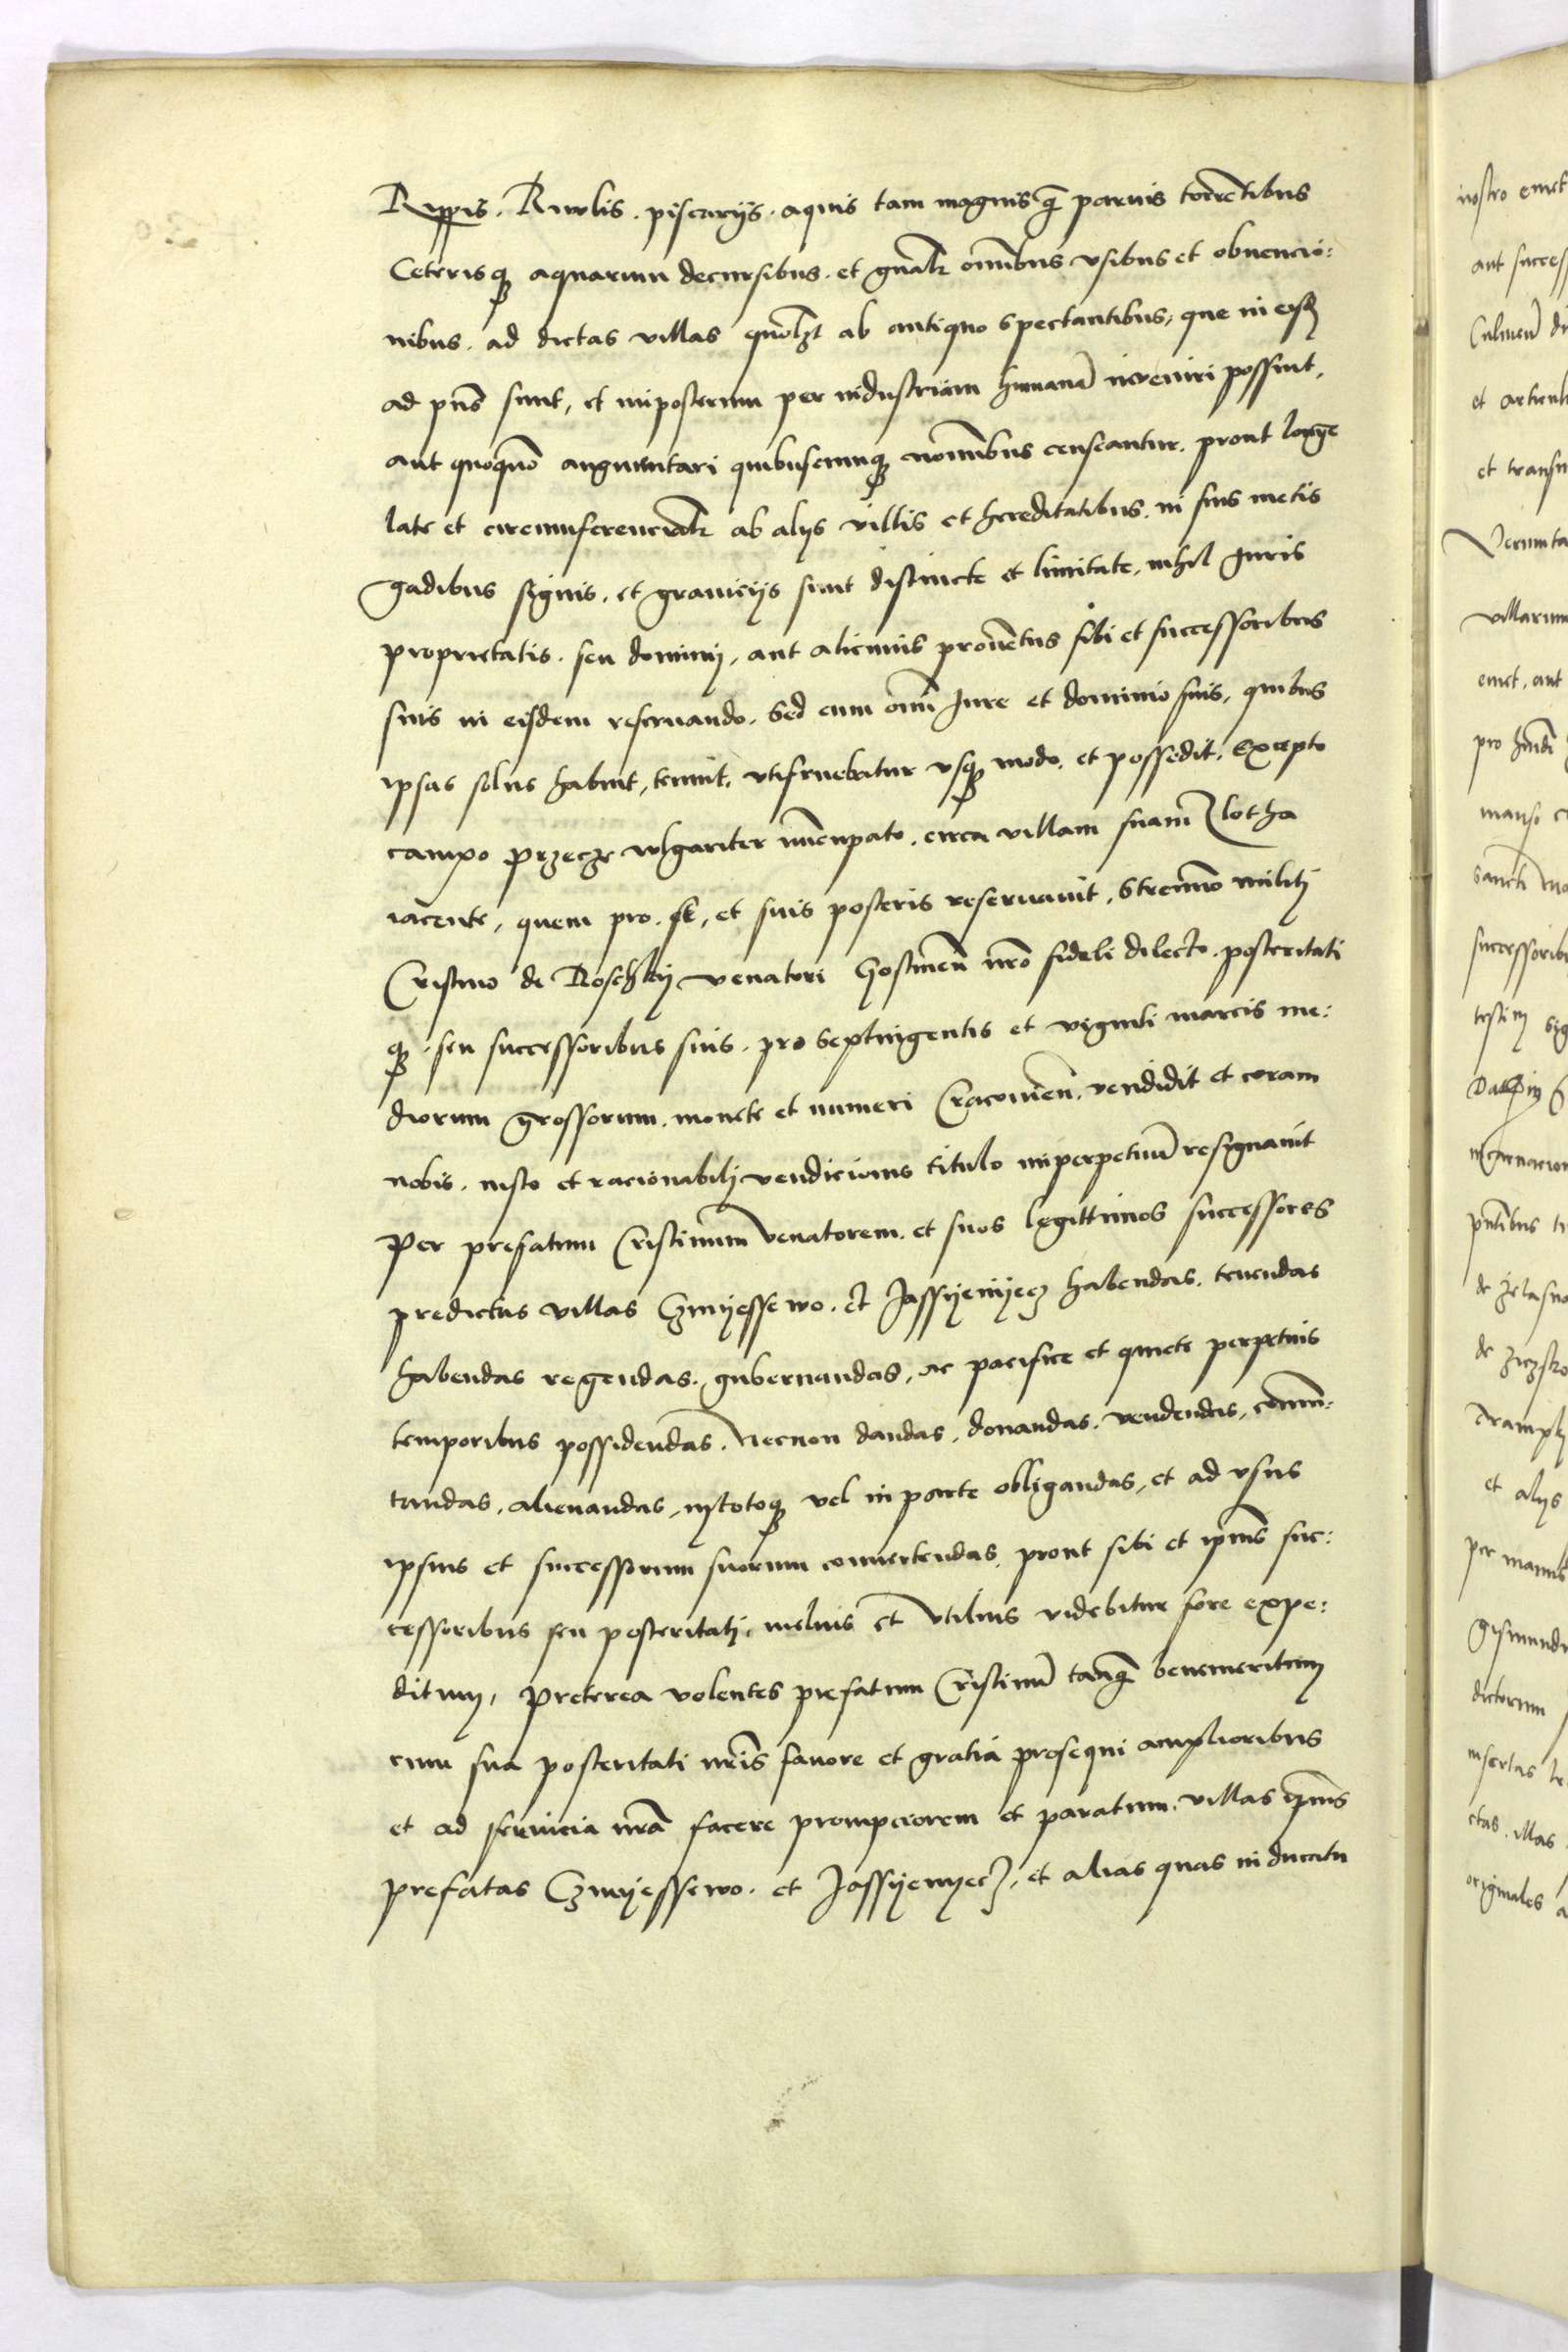 Ryppis. Riwlis. piscarijs. aquis tam magnis q̃ paruis torrẽtibus
Ceterisq; aquarum decursibus. et gn̄alr̄ om̄ibus vsibus et obuencio:
nibus. ad dictas villas quōlꝫt ab antiquo spectantibus, que in eisd̄
ad pn̄s sunt, et inposterum per industriam humanā inveniri possint,
aut quoquo augmentari quibuscumq; nom̄ibus censeantur. prout longe
late et circumferencialr̄ ab alijs villis et hereditatibus. in suis metis
gadibus signis. et granicijs sunt distincte et limitate, nihil Juris
proprietatis. seu dominij, aut alicuius prouẽtus sibi et successoribus
suis in eisdem reseruando. Sed cum om̄i Jure et dominio suis, quibus
ipsas solus habuit, tenuit, vtifruebatur vsq; modo. et possedit. Excepto
campo Przecze wlgariter nūcupato. circa villam suam Zlotha
iacente, quem pro. se, et suis posteris reseruauit, Strennuo militj
Cristino de Roschky venatori Gostinen̄ nr̄o fideli dilecto. posteritati
q; seu successoribus suis. pro Septingentis et viginti marcis me:
diorum grossorum. monete et numeri Cracouien̄. vendidit et coram
nobis. iusto et racionabilj vendicionis titulo inperpetuū resignauit
Per prefatum Cristinum venatorem. et suos legittimos successores
predictas villas Czmyessewo. et Jassyenyecz habendas. tenendas
habendas regendas. gubernandas, ac pacifice et quiete perpetuis
temporibus possidendas. Necnon dandas, donandas. vendendas, cōmu:
tandas, alienandas, intotoq; vel in parte obligandas, et ad vsus
ipsius et successorum suorum conuertendas, prout sibi et ipīus suc:
cessoribus seu posteritatj, melius et vtilius videbitur fore expe:
ditum, Preterea volentes prefatum Cristinū tanq̃ benemeritum
cum sua posteritati nr̄is fauore et gratia prosequi amplioribus
et ad seruicia nr̄a facere prompciorem et paratum. villas ip̄ius
prefatas Czmyessewo. et Jassyenyecz, et alias quas in ducatu
nostro emet
aut success
Culmen̄
et articul
et transu
Verunta
villarum
emet, aut
pro
manso
Sancti
successorib
testim
Datum
incarnacion
pn̄tibus
de Zelasno
de
et alijs
per manus
Gismund
dictorum
insertas
ctas. illas
originales